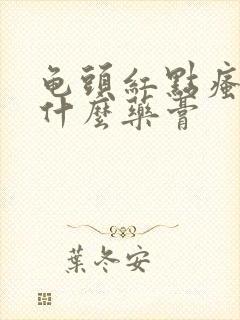 龟頭紅點瘙
什麼藥膏
葉冬安